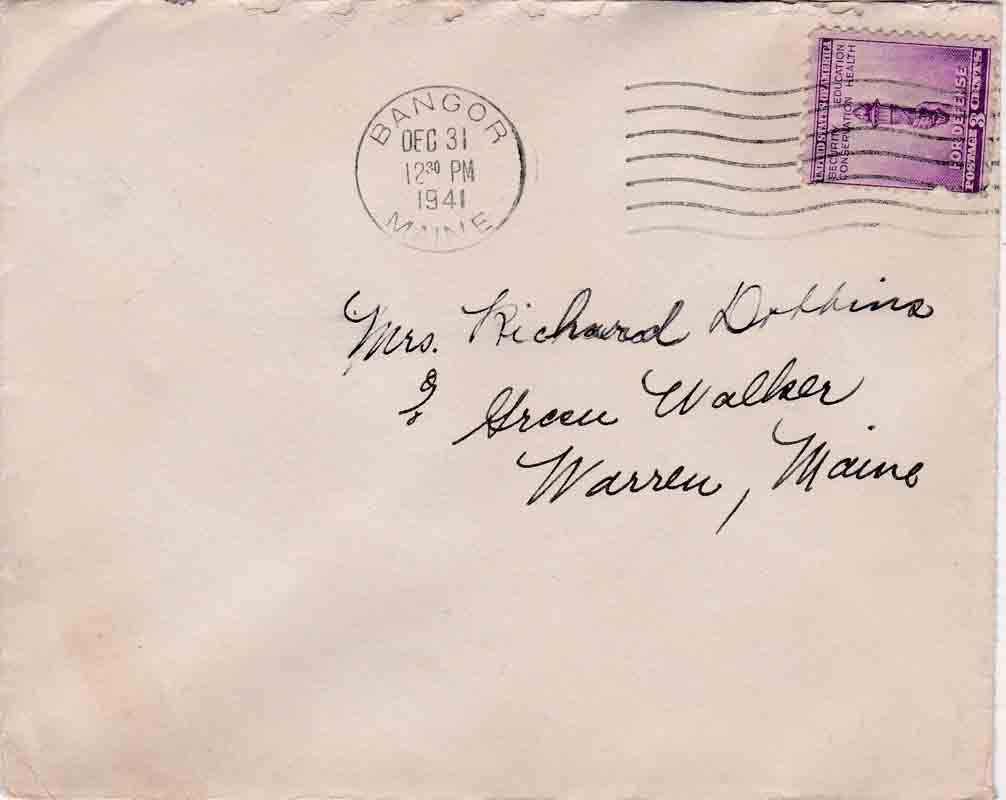 BANGOR
DEC 31
12³⁰ PM
1941
MAINE
UNITED STATES OF AMERICA
SECURITY EDUCATION
CONSERVATION HEALTH
FOR DEFENSE
POSTAGE 3 CENTS
Mrs. Richard Dobbins
Green Walker
Warren, Maine